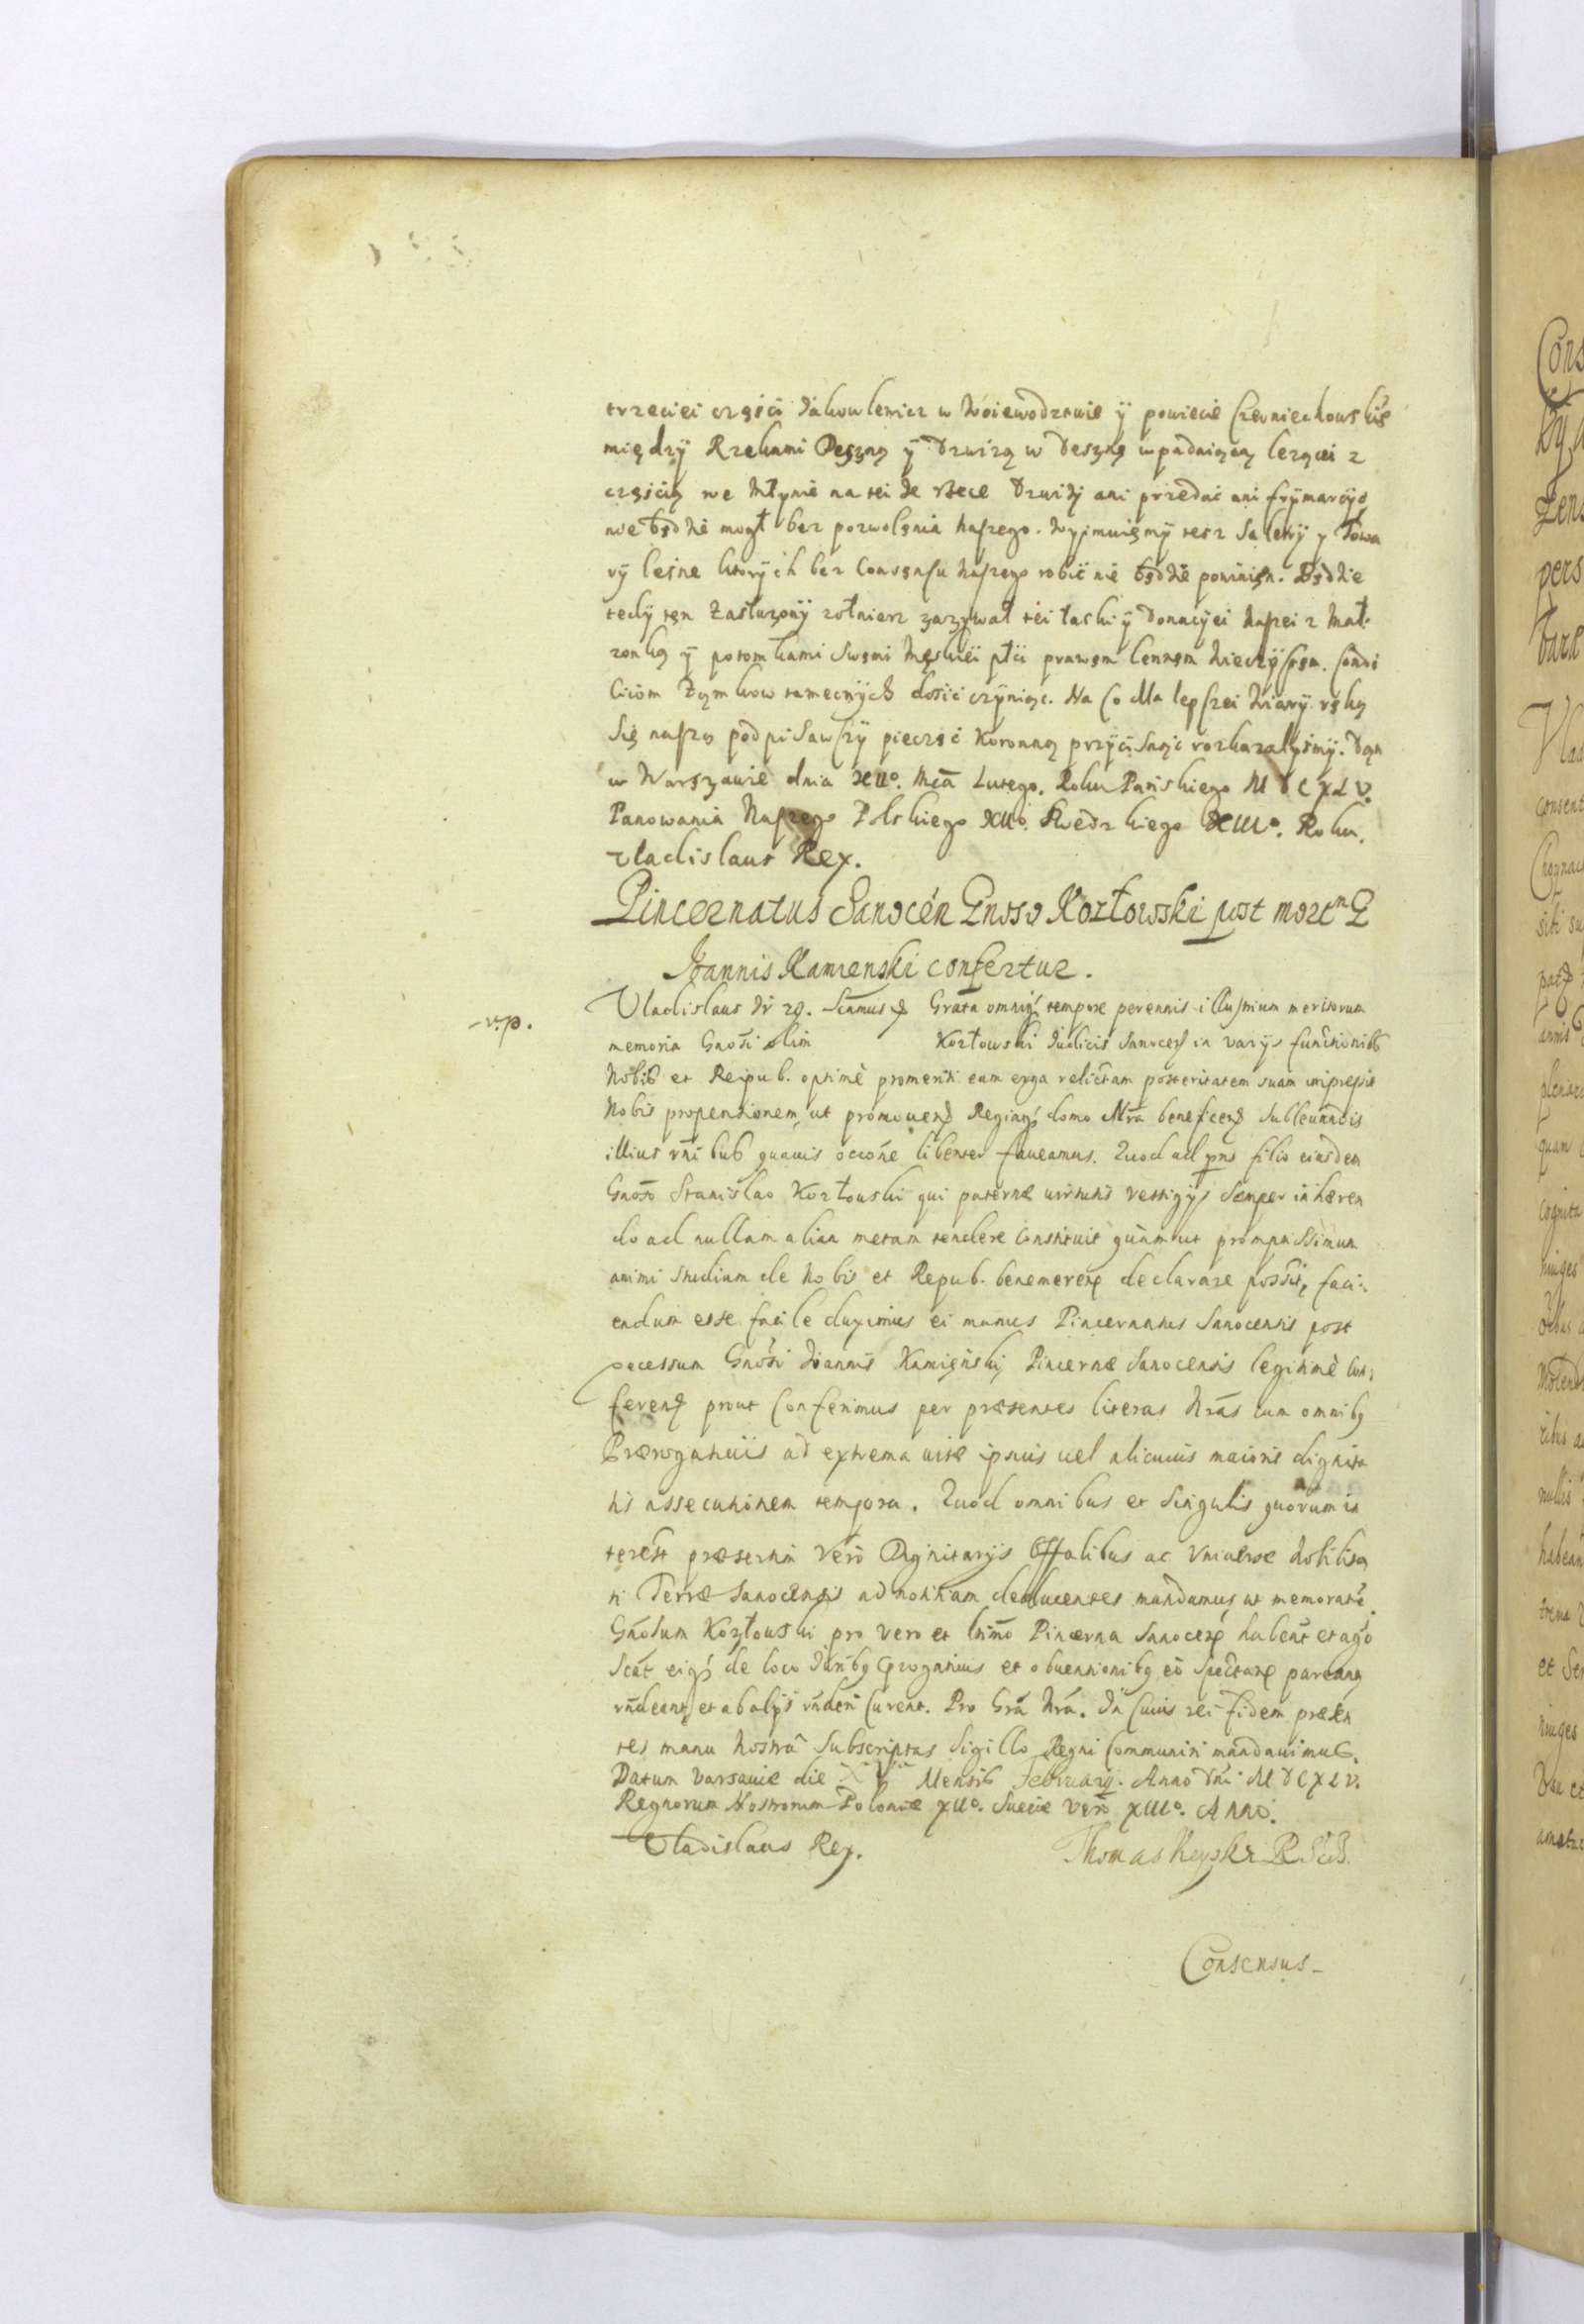 trzeciei części Jakowlewicz w Woiewodztwie ÿ powiecie Czerniechowskiē
międzÿ Rzekami Desznę ÿ Dzwizą w Desznę wpadaiącą lezącei z
częścią we Młynie na tei ze rzece Dzwizy ani przedać ani frymarczyć
nie będzie mogł bez pozwolenia naszego. Wyjmuięmÿ tesz Saletrÿ y Towa
rÿ lesne ktorych bez Consęnsu naszego robić nie będzie powinięn. Będzie
tedÿ ten Zasłuzonÿ zołnierz zazÿwał tei łaski ÿ donacÿei naszei z Mał:
zonką ÿ potomkami Swemi Męskiei płci prawęm lennęm Wieczÿstęm. Condi
Ciiom Zamkow tamecznÿch dosić czÿniąc. Na Co dla lepszei Wiarÿ ręką
Się naszą podpisawszÿ pieczęć Koronną przÿcisnąć rozkazalismÿ. Dan
w Warszawie dnia XIIº. Mca Lutego. Roku Pańskiego M D C X L V.
Panowania Naszego Polskiego XIIº. Szwedzkiego XIIIº. Roku.
Vladislaus Rex.
Pincernatus Sanocēn Gnoso Kozłowski post mortem G
Joannis Kamienski confertur.
-v.p.
Vladislaus IV Significamus Grata omnique tempore perennis illustrium meritorum
memoria Gnosi olim Kozłowski Judicis Sanocen in varijs functionibus
Nobis et Reipub. optimè promeriti eam erga relictam posteritatem suam impressit
Nobis propensionem, ut promouen Regiaque domo Nra beneficen Subleuandis
illius rationibus quauis occōne libenter faueamus. Quod ad pns filio eiusdem
Gnoso Stanislao Kozłouski qui paternæ uirtutis vestigijs Semper inhæren
do ad nullam aliam metam tendere Constituit quàm ut promptissimum
animi studium de Nobis et Repub. benemeren declarare possit, faci:
endum esse facile duximus ei munus Pincernatus Sanocensis post
decessum Gnosi Joannis Kamięński Pincernæ Sanocensis legitimè Con:
feren prout Conferimus per præsentes literas Nrās cum omnibq
Prærogatiuis ad extrema uitæ ipsius uel alicuius maioris dignita
tis assecutionem tempora. Quod omnibus et Singulis quorum in
terest præsertim Verò Dignitarijs Offalibus ac Vniuersæ Nobilita
ti Terræ Sanocensis ad notitiam deducentes mandamus, ut memoratū
Gnosum Kozłouski pro vero et ltimo Pincerna Sanocen habeāt et agno
Scāt eiq de loco Juribq prgatiuis et obuentionibq eo Spectan pareant
rn̄deant, et ab alijs rn̄deri Curent. Pro Grā Nrā. In Cuius rei fidem præsen
tes manu Nostra Subscriptas Sigillo Regni Communiri mandauimus.
Datum Varsauiæ die XVII Mensis Februarij. Anno Dni M D C X L V.
Regnorum Nostrorum Poloniæ XIIº. Sueciæ Verò XIIIº. Anno.
Vladislaus Rex. Thomas Ujeyski R. S.
Consensus-